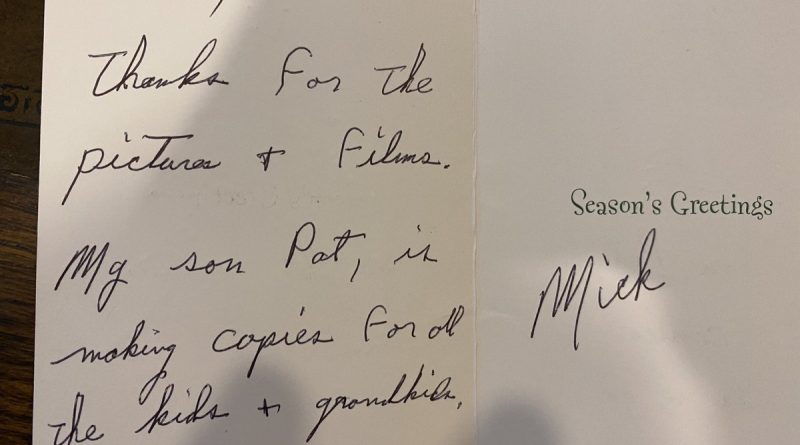 Thanks for the
pictures + films.
My son Pat, is
making copies for all
the kids + grandkids.
Season's Greetings
Mick